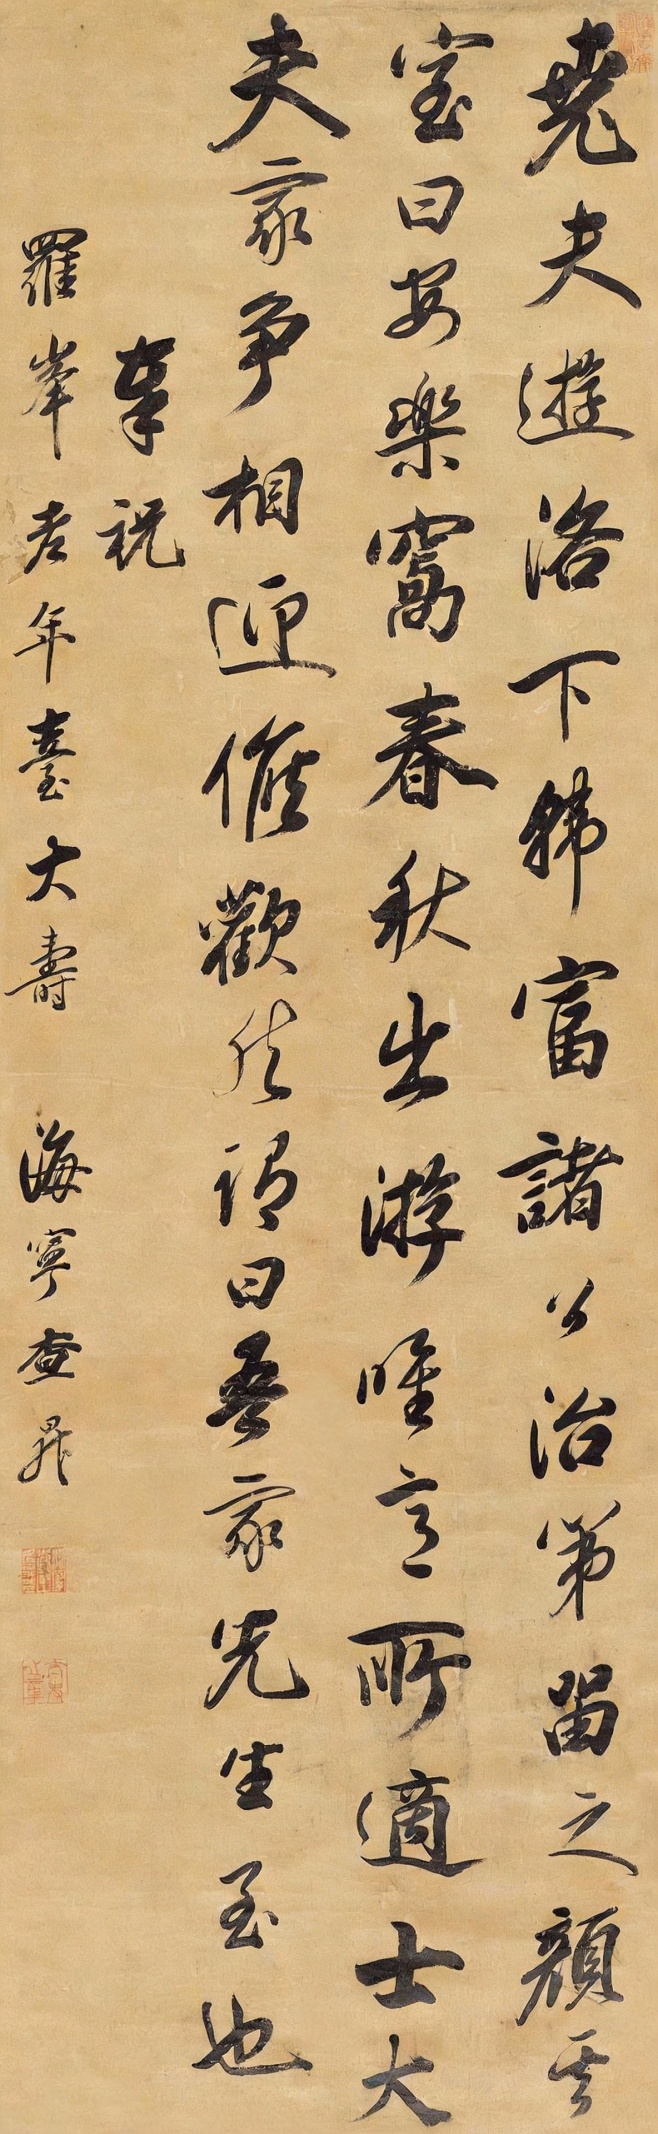 堯夫遊洛下韩富諸公治第留之顏其
室曰安樂窩春秋出游唯意所適士大
夫家争相迎候歡然謂曰吾家先生至也
奉祝
羅峯老年臺大壽 海寧查昇